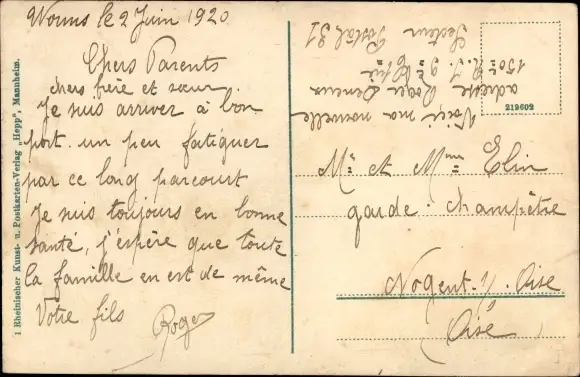 Worms le 2 Juin 1920
Chers Parents
chers frère et sœur.
Je suis arriver à bon
port un peu fatiguer
par ce long parcourt
Je suis toujours en bonne
santé, j'espère que toute
la famille en est de même
Votre fils
Roger
Voiçi ma nouvelle
adresse Roger
150e R. I. 9e Cie
Secteur Postal 31
219602
Mr et Mme Elin
garde-champêtre
Nogent s/ Oise
Oise
1 Rheinischer Kunst- u. Postkarten-Verlag „Hepp", Mannheim.